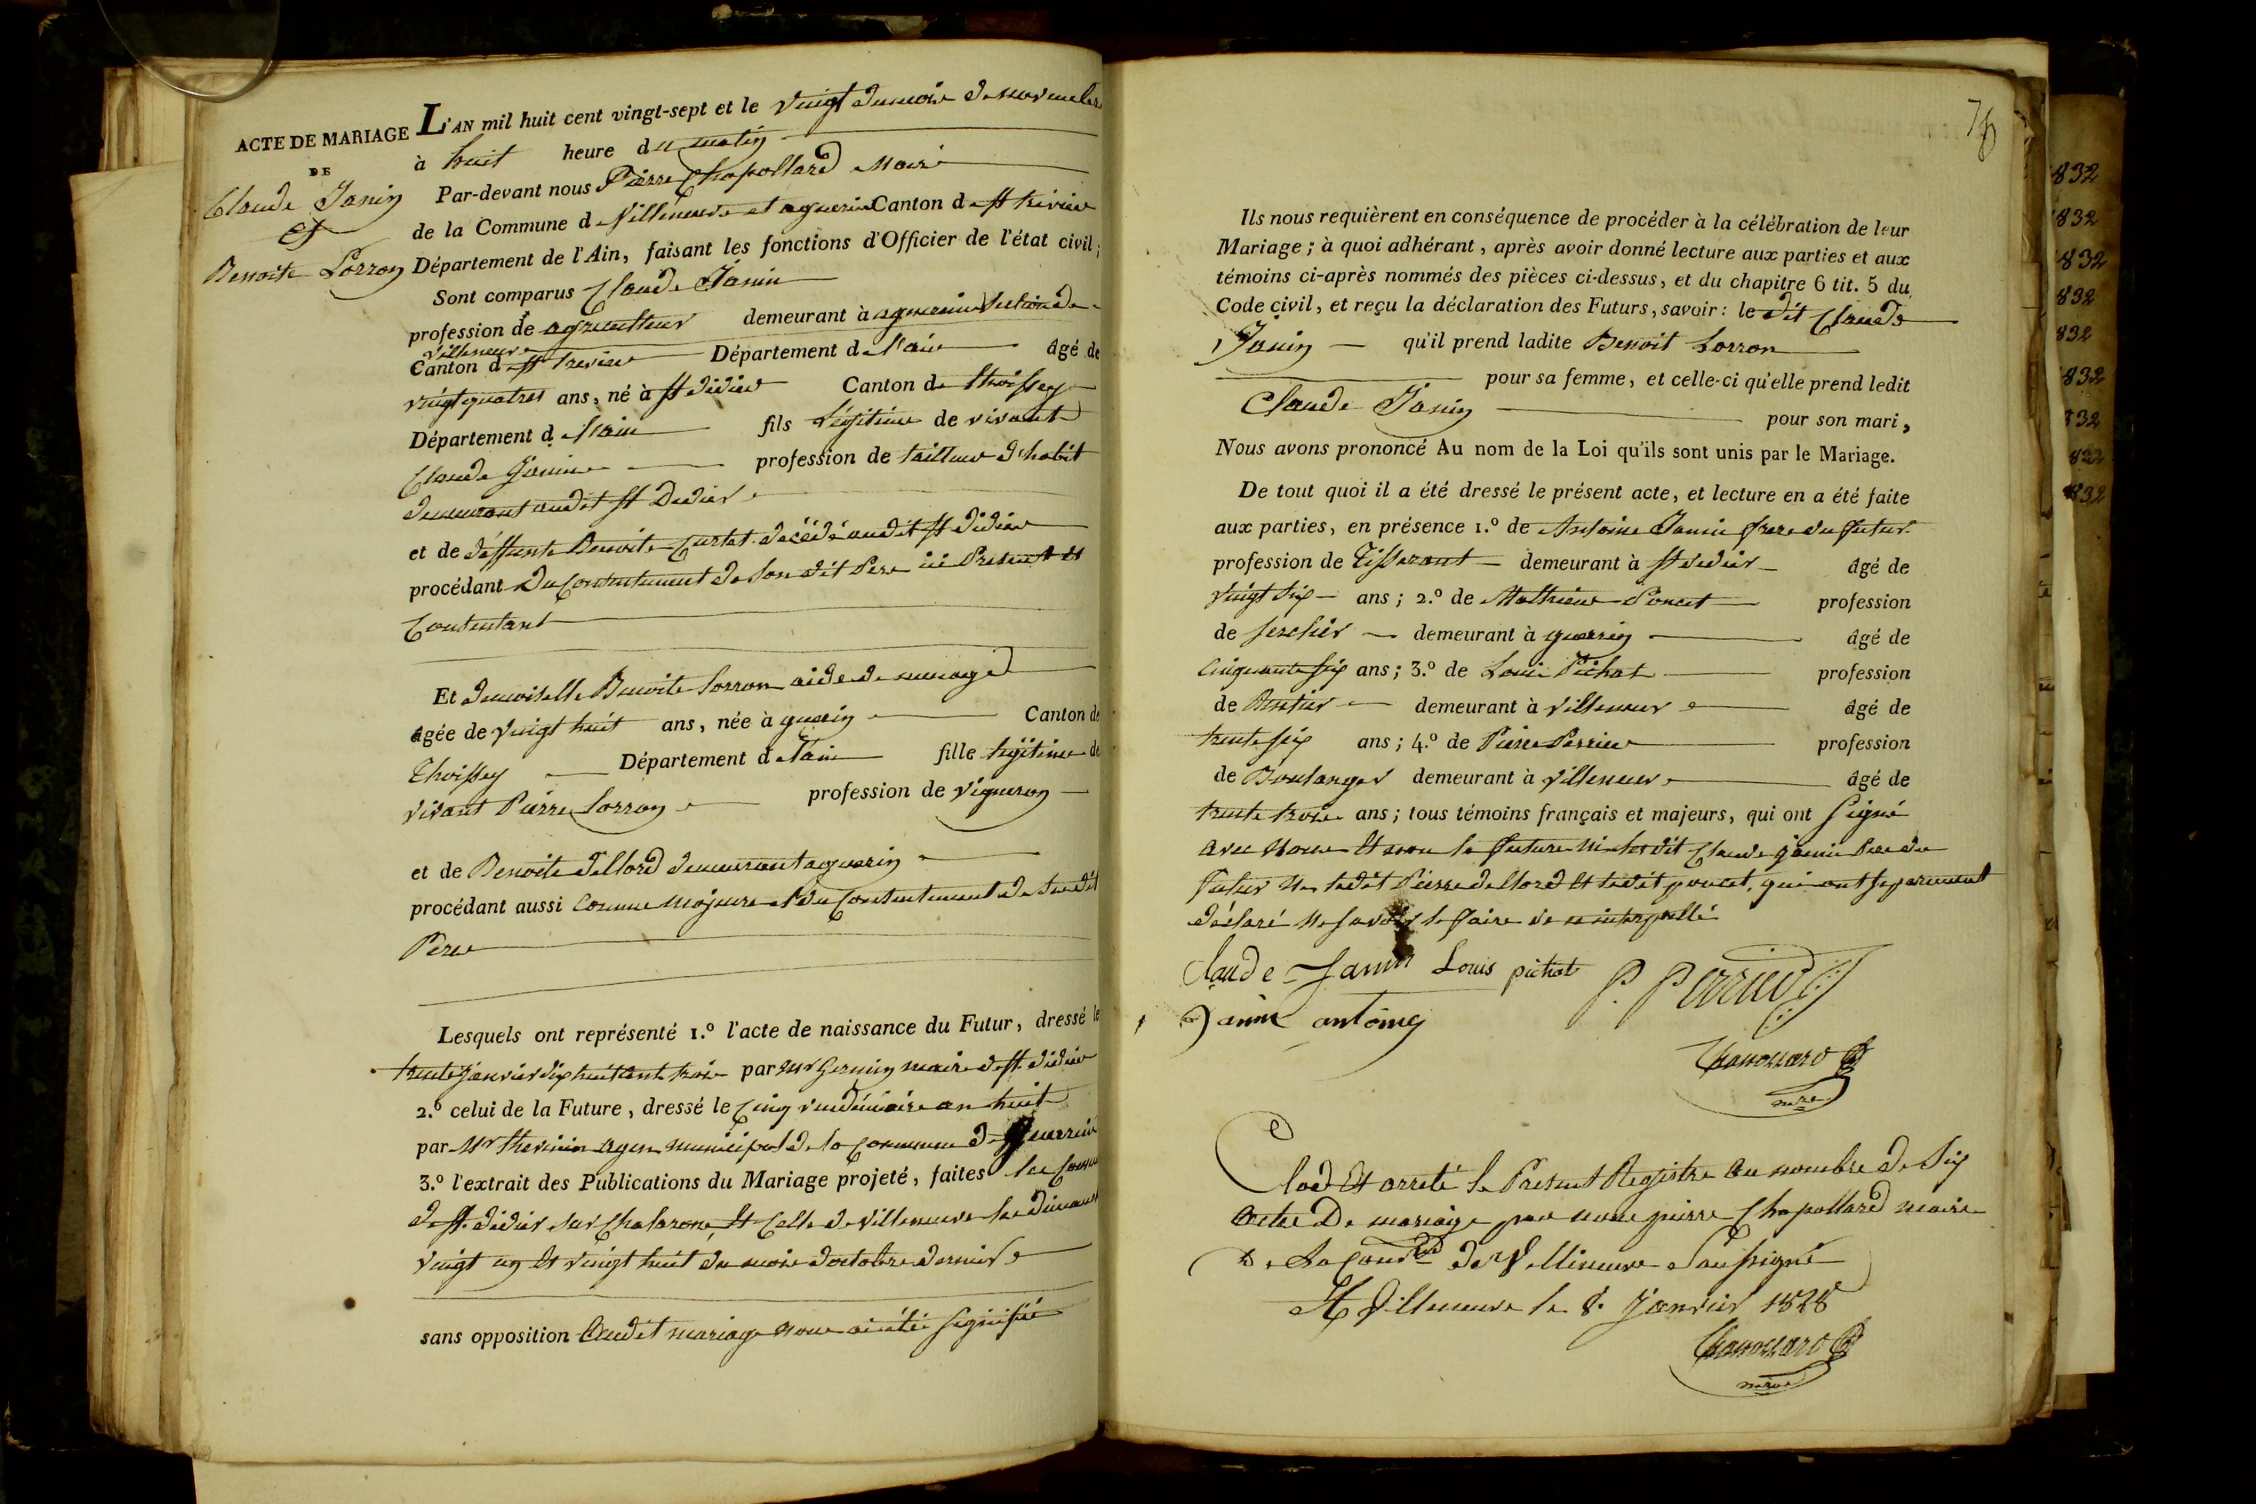 ACTE DE MARIAGE
DE
Claude Janin
Et
Benoite Lorron
L'AN mil huit cent vingt-sept et le vingt du mois de novembre
à huit heure du matin
Par-devant nous Pierre Chapollard Maire
de la Commune de Villeneuve et aguerin Canton de st trivier
Département de l'Ain, faisant les fonctions d'Officier de l'état civil;
Sont comparus Claude Janin
profession de agriculteur demeurant à aguerin section de
Villeneuve
Canton de st trevier Département de l'ain âgé de
vingt quatres ans, né à st didier Canton de thoissey
Département de l'ain fils Légitime de vivant
Claude Janin profession de tailleur d'habit
demeurant audit st Didier
et de déffunte Benoite Curtet décédé audit st didier
procédant Du Consentement de son dit Pere ici Present et
Consentant
Et demoiselle Benoite Lorron aide de menage
âgée de vingt huit ans, née à guerin Canton de
Thoissey Département de l'ain fille légitime de
vivant Pierre Lorron profession de vigneron
et de Benoite dellord demeurant a guerin
procédant aussi comme majeure et du Consentement de sondit
Pere
Lesquels ont représenté 1.º l'acte de naissance du Futur, dressé le
trente janvier dix huit cent trois par Mr Germin maire de st didier
2.º celui de la Future, dressé le Cinq vendémiaire an huit
par Mr thevinin agen municipal de la Commune de Guerrin
3.º l'extrait des Publications du Mariage projeté, faites
de st didier sur Chalarone, Et Celle de villeneuve les dimanch
vingt un Et vingt huit du mois d'octobre dernier
sans opposition audit mariage nous ai été signifié
76
Ils nous requièrent en conséquence de procéder à la célébration de leur
Mariage; à quoi adhérant, après avoir donné lecture aux parties et aux
témoins ci-après nommés des pièces ci-dessus, et du chapitre 6 tit. 5 du
Code civil, et reçu la déclaration des Futurs, savoir: le dit Claude
Janin qu'il prend ladite Benoit Lorron
pour sa femme, et celle-ci qu'elle prend ledit
Claude Janin pour son mari,
Nous avons prononcé Au nom de la Loi qu'ils sont unis par le Mariage.
De tout quoi il a été dressé le présent acte, et lecture en a été faite
aux parties, en présence 1.º de Antoine Janin frere du futur
profession de Tisserant demeurant à st didier âgé de
vingt six ans; 2.º de Mathieu Poncet profession
de serclier demeurant à guerrin âgé de
cinquante six ans; 3.º de Louis Pichat profession
de Rentier demeurant à villeneuve âgé de
trente six ans; 4.º de Pierre Perrier profession
de Boulanger demeurant à villeneuve âgé de
trente trois ans; tous témoins français et majeurs, qui ont signé
avec nous Et non la future ni ledit Claude janin Pere du
futur Ni ledit Pierre dellord Et ledit poncet, qui ont separement
déclaré ne savoir le faire de ce interpellé
Claude Janin Louis pichat P. Perrier
Janin antoine
Chapollard
mre
Clos Et arreté le Present Registre au nombre de Six
actes De mariage par nous pierre Chapollard maire
de La Comune de Villeneuve Soussigné
A Villeneuve le 8. Janvier 1828
Chapollard
maire
832
832
832
832
832
832
832
832
832